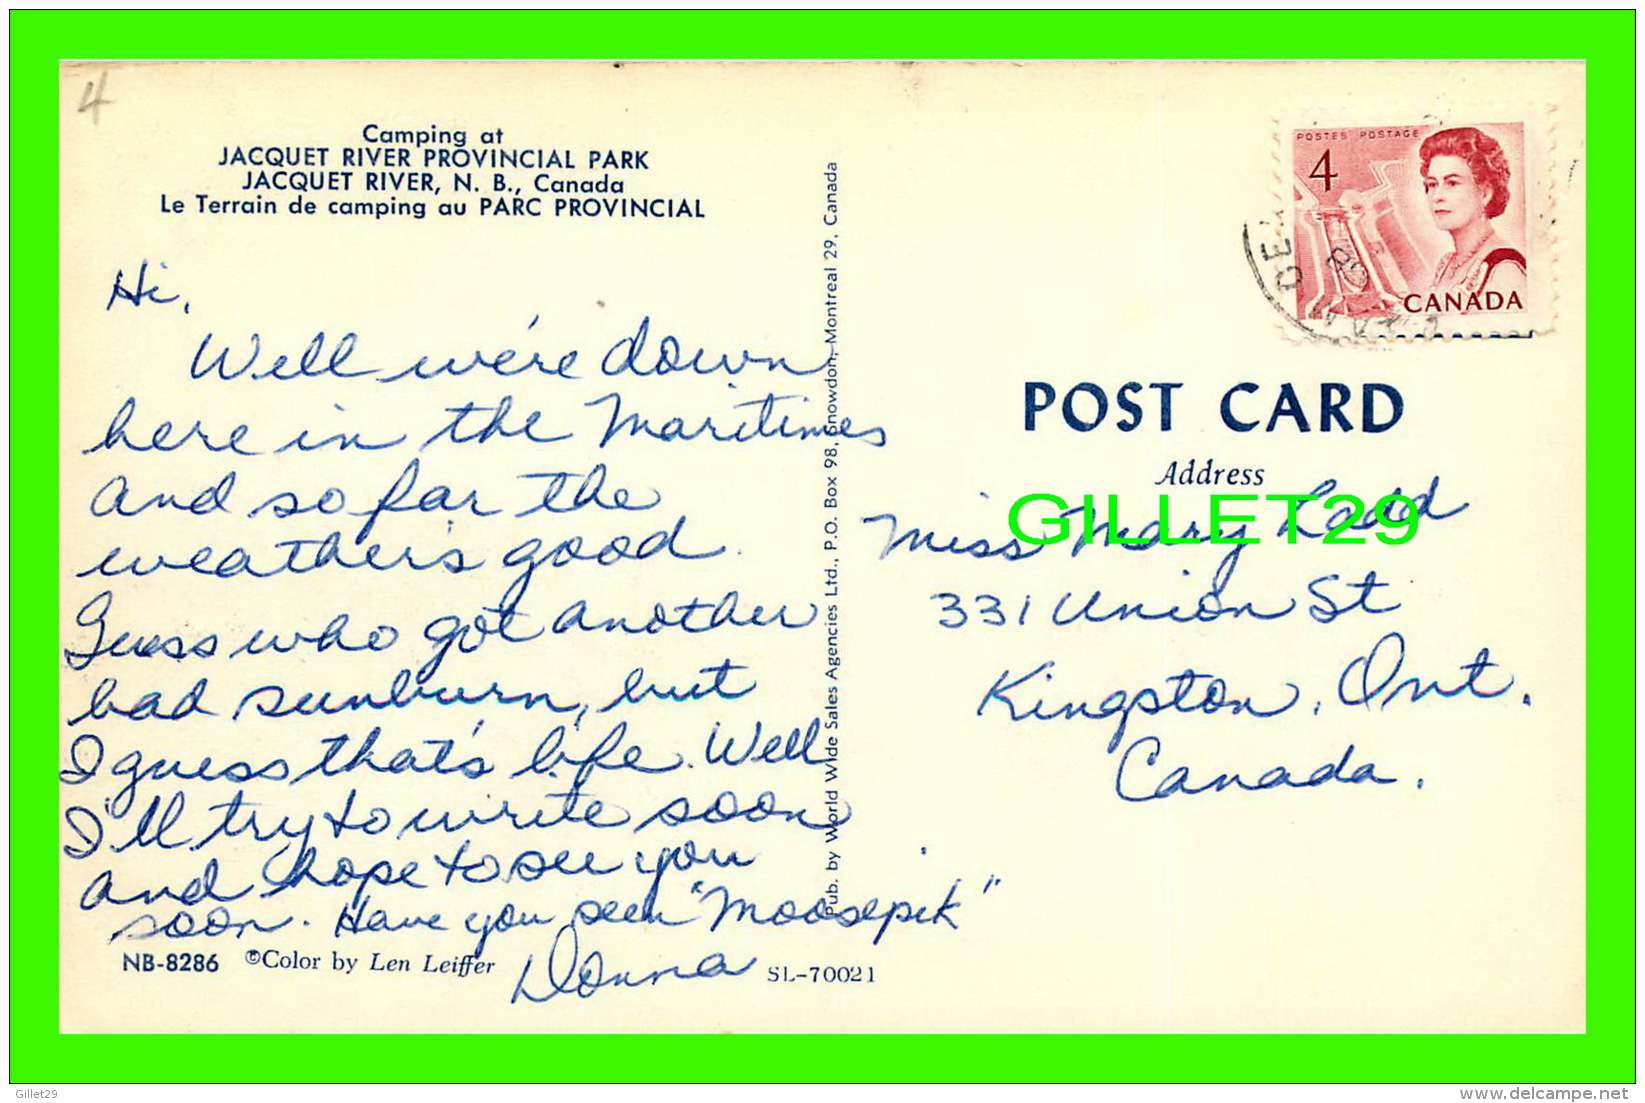 4
Camping at
JACQUET RIVER PROVINCIAL PARK
JACQUET RIVER, N. B., Canada
Le Terrain de camping au PARC PROVINCIAL
Hi,
Well we're down
here in the Maritimes
and so far the
weather's good.
Guess who got another
bad sunburn, but
I guess that's life. Well
I'll try to write soon
and hope to see you
soon. Have you seen "Moosepik"
Donna
NB-8286 ©Color by Len Leiffer
SL-70021
Pub. by World Wide Sales Agencies Ltd., P.O. Box 98, Snowdon, Montreal 29, Canada
POSTES POSTAGE
4
CANADA
POST CARD
Address
GILLET29
Miss Mary Ladd
331 Union St
Kingston, Ont.
Canada.
Gillet29
http://www.delcampe.net